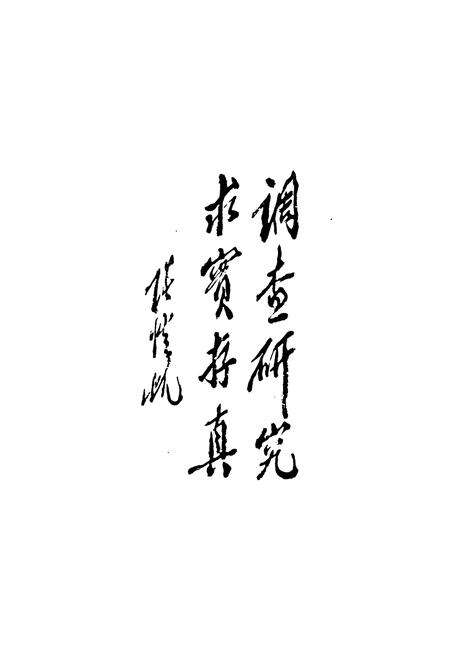 调查研究
求實存真